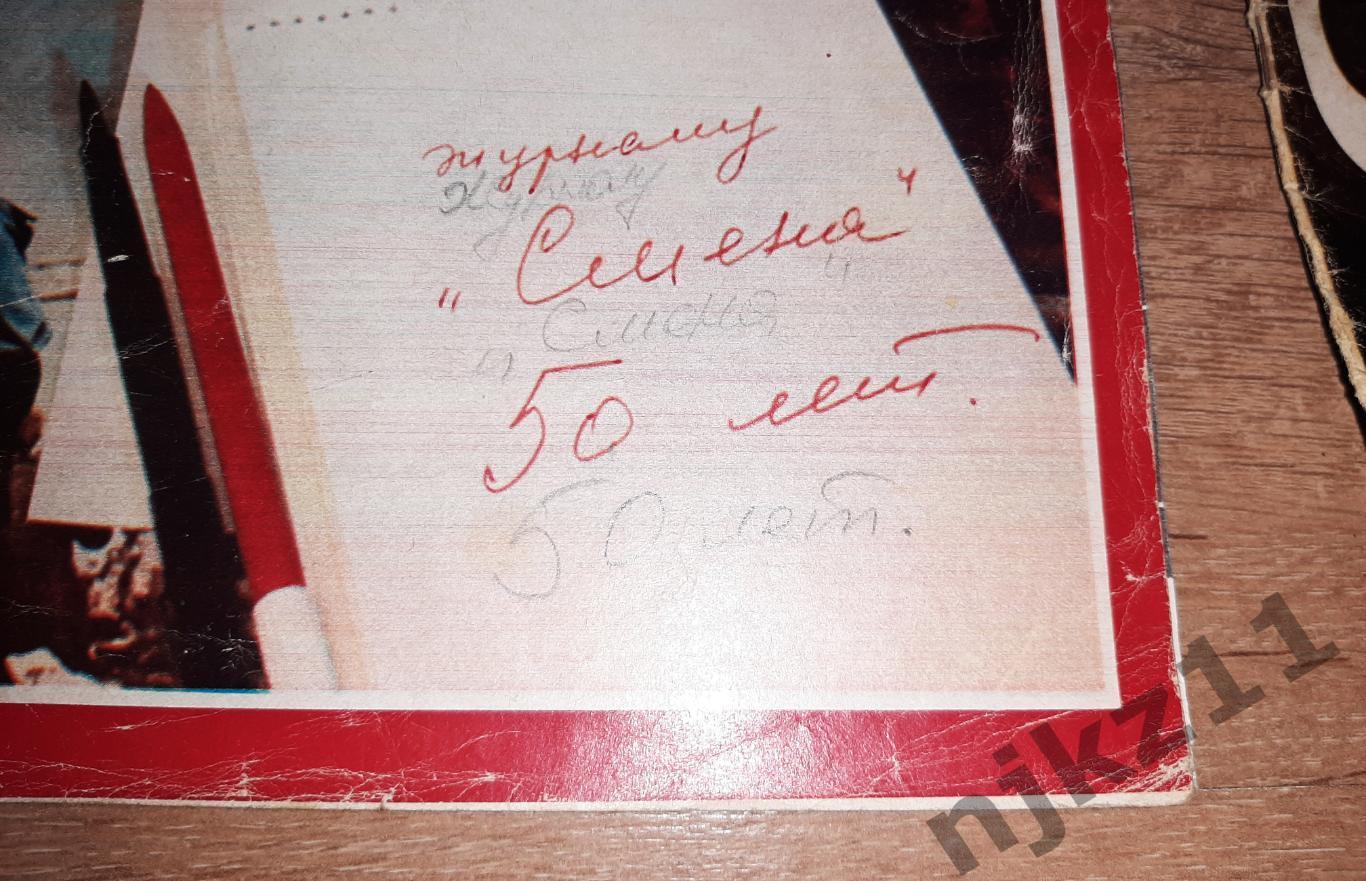 журналу
журналу
„Смена"
„Смена"
50 лет.
50 лет.
njkz11